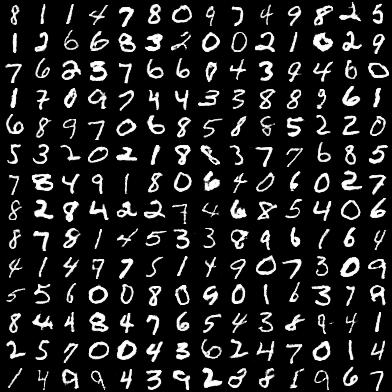 8 1 1 4 7 8 0 9 7 4 9 8 2 5
1 2 6 6 8 3 2 0 0 2 1 0 2 9
7 6 2 3 7 6 6 9 4 3 9 4 6 0
1 7 0 9 7 4 4 3 3 8 8 9 6 1
6 8 9 7 0 6 8 5 8 8 5 2 2 0
5 3 2 0 2 1 8 8 3 7 7 6 8 5
7 8 4 9 1 8 0 6 4 0 6 0 2 7
8 2 8 4 2 2 7 4 6 8 5 4 0 6
8 7 8 1 4 5 3 3 8 9 6 1 6 4
4 1 4 9 7 5 1 4 9 0 7 3 0 9
5 5 6 0 0 8 0 9 0 1 6 3 7 8
8 4 4 8 4 7 6 5 4 3 8 9 4 1
2 5 7 0 0 4 3 6 2 4 7 0 1 4
1 4 9 9 4 3 9 2 8 8 5 9 6 7